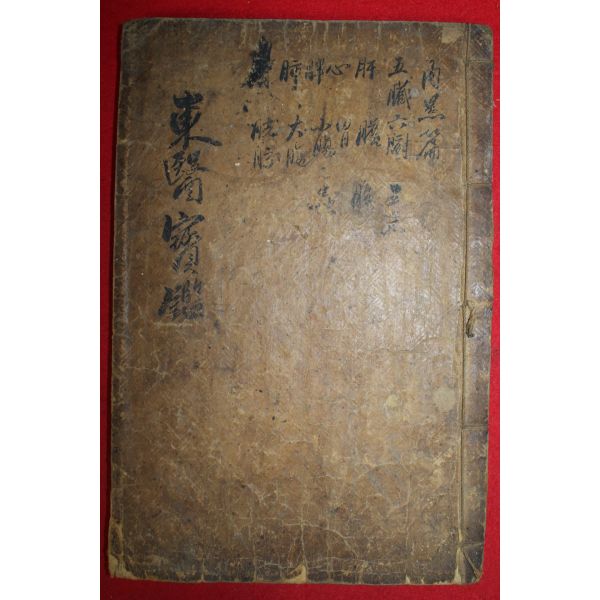 內景篇
五臟六腑 三焦
肝 膽 胞
心 胃
脾 小腸 虫
肺 大腸
東醫寶鑑